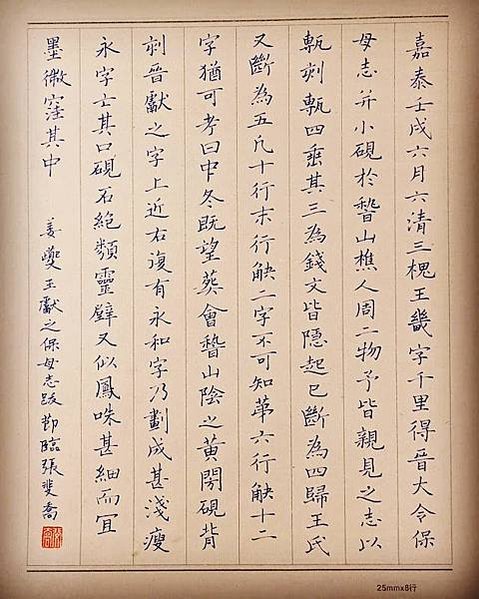 嘉泰壬戌六月六清三槐王畿字千里得晉大令保
母志并小硯於稽山樵人周二物予皆親見之志以
甎刻甎四垂其三為錢文皆隱起已斷為四歸王氏
又斷為五凡十行末行觖二字不可知第六行觖十二
字猶可考曰中冬既望葬會稽山陰之黃閍硯背
刻晉獻之字上近右復有永和字乃劃成甚淺瘦
永字亡其口硯石絕類靈壁又似鳳咮甚細而宜
墨微窪其中 姜夔王獻之保母志跋 節臨張斐喬
25mmx8行